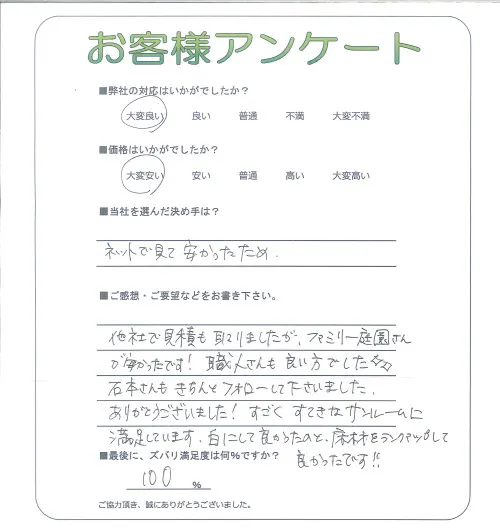 お客様アンケート
■弊社の対応はいかがでしたか？
大変良い 良い 普通 不満 大変不満
■価格はいかがでしたか？
大変安い 安い 普通 高い 大変高い
■当社を選んだ決め手は？
ネットで見て安かったため.
■ご感想・ご要望などをお書き下さい。
他社で見積も取りましたが、ファミリー庭園さん
が安かったです! 職人さんも良い方でした☆☆
石本さんもきちんとフォローして下さいました.
ありがとうございました! すごくすてきなサンルームに
満足しています. 白にして良かったのと、床材をランクアップして
良かったです!!
■最後に、ズバリ満足度は何%ですか？
100 %
ご協力頂き、誠にありがとうございました。